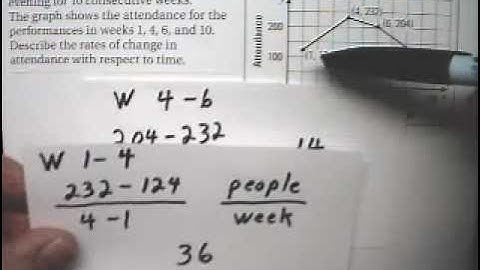 evening for 10 consecutive weeks.
The graph shows the attendance for the
performances in weeks 1, 4, 6, and 10.
Describe the rates of change in
attendance with respect to time.
Attendance
200
100
(4, 232)
(6, 204)
(1,
W 4-6
204-232
14
W 1-4
232-124
4-1
people
week
36